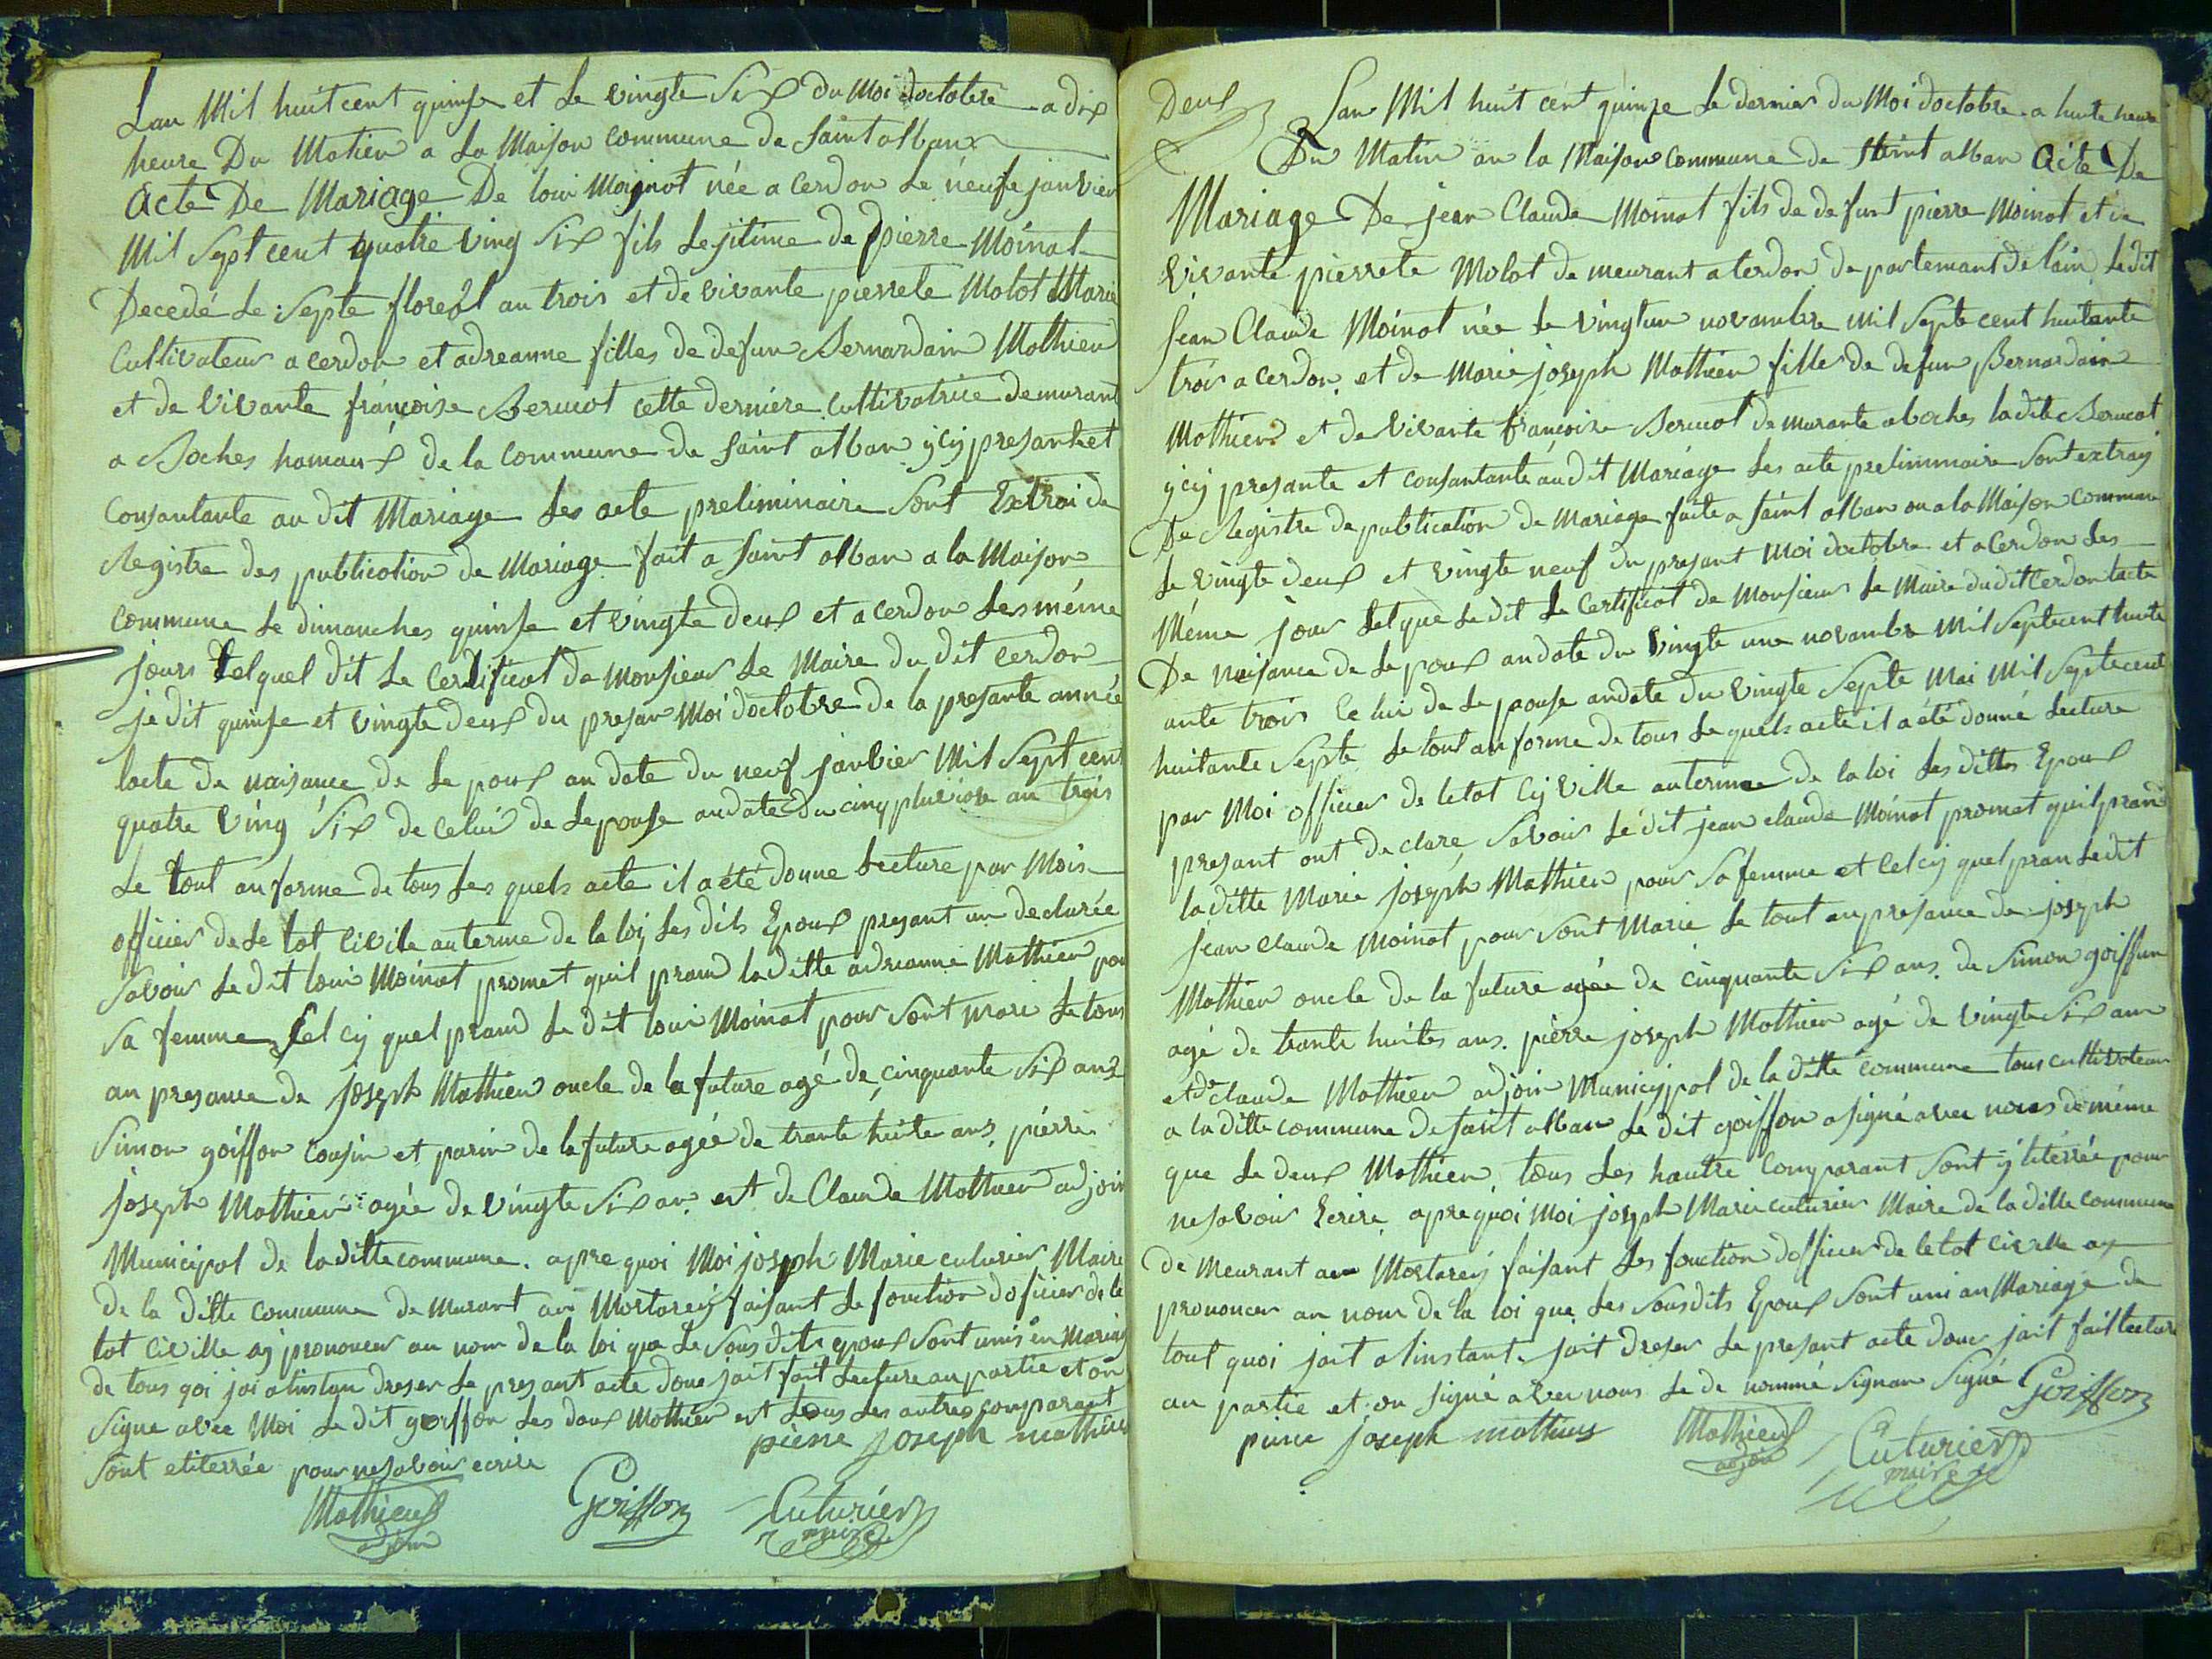 Lan Mil huit cent quinse et Le vingte Six du Moi doctobre a dix
heure Du Matien a La Maison commune de Saint alban
Acte De Mariage De loui Moginot née a Cerdon Le neufe janvier
Mil Sept cent quatre ving Six fils Lejitime de pierre Moinat
Decedé Le Septe floreal an trois et de vivante pierrete Molot Marie
Cultivateur a cerdon et adreanne filles de defun Bernardain Mathieu
et de vivante françoise Berucot cette derniére cultivatrice demurant
a Boches hamaux de la commune de Saint alban ycy presante et
Consantante au dit Mariage Les acte preliminaire Sont Extrai de
Registre des publication de Mariage fait a Saint alban a la Maison
commune Le dimanches quinse et vingte deux et a cerdon Les méme
jours tel quel dit Le Certificat de Monsieur Le Maire du dit cerdon
je dit quinse et vingte deux du presan Moi doctobre de la presante année
lacte de naisance de Le poux an date du neuf janvier Mil Sept cent
quatre ving Six de celui de Lepouse andate du cinq pluviose an trois
Le tout an forme de tous Les quels acte il a été donne Lecture par Mois
officier de Le tat civile au terme de la loi, Les dits Epoux presant un declarée
Savoir Le dit loui Moinat promet quil prand la ditte adreanne Mathieu pou
Sa femme Cel cy quel prand Le dit loui Moinat pour Sont mari Le tous
an presance de joseph Mathieu oncle de la future agé de cinquante Six ans
Simon goiffon cousin et parin de la future agée de trante huite ans, piérre
joseph Mathieu agée de vingte Six an et de Claude Mathieu adjoin
Municipal de la ditte commune. apre quoi Moi joseph Marie cuturier Maire
de la ditte commune demurant au Mortarey faisant Le fonction doficier de le
tat civille ay prononcer au nom de la loi que Le Sous dits epoux Sont unis en Mariag
de tous qoi jai a linstan dreser Le presant acte donc jait fait Lecture au partie et on
Signe avec Moi Le dit goiffon Les doux Mathieu et tous Les autres comparant
Sont eliterrée pour ne Savoir ecrire
pierre joseph mathieu
Mathieu
adjoin
Goiffon
Cuturier
maire
Deux
Lan Mil huit cent quinze Le dernier du Moi doctobre a huite heure
Du Matin an la Maison Commune de Saint alban Acte De
Mariage De jean Claude Moinat fils de defunt pierre Moinat et de
vivante pierrete Molot demeurant a cerdon departemant de lain Ledit
jean Claude Moinat née Le vingtun novambre Mil Septe cent huitante
trois a Cerdon et de Marie joseph Mathieu fille de defun Bernardain
Mathieu et de vivante françoise Berucot demurante a boches la dite Berucot
ycij presante et consantante au dit Mariage Les acte preliminaire Sont extray
De Registre de publication de Mariage faite a Saint alban ou a la Maison commune
Le vingte deux et vingte neuf du presant Moi doctobre et a Cerdon Les
Méme jour tel que Le dit Le Certificat de Monsieur Le Maire du dit Cerdon lacte
De naisance de Le poux an date du vingte une novambre Mil Septecent huite
ante trois Celui de Le pouse andate du vingte Septe Mai Mil Septecent
huitante Septe Le tout an forme de tous Le quels acte il a été donné Lecture
par Moi officier de letat cij ville au terme de la loi Les dittes Epoux
presant ont declaré Savoir Le dit jean claude Moinat promet quil prand
la ditte Marie joseph Mathieu pour Sa femme et Cel cy quel pran Le dit
jean claude Moinat pour Sont Marie Le tout an presance de joseph
Mathieu oncle de la future agée de cinquante Six ans. de Simon goiffun
agé de trante huites ans. pierre joseph Mathieu agé de vingte Six ans
et de claude Mathieu adjoin Municypal de la ditte commune tous cultivateur
a la ditte commune de Saint alban Le dit goiffon a Signé avec nous de méme
que Le deux Mathieu tous Les hautre Comparant Sont yliterrée pour
ne Savoir Ecrire apre quoi Moi joseph Marie cuturier Maire de la ditte commune
demeurant au Mortarey faisant Les fonction dofficier de letat civille ay
prononcer au nom de la loi que Les Sousdits Epoux Sont uni an Mariage de
tout quoi jait a linstant fait dreser Le presant acte donc jait fait lecture
au partie et on Signé avec nous Le de nommé Signan Signé Goiffon
pierre joseph mathieu
Mathieu
adjoin
Cuturier
maire